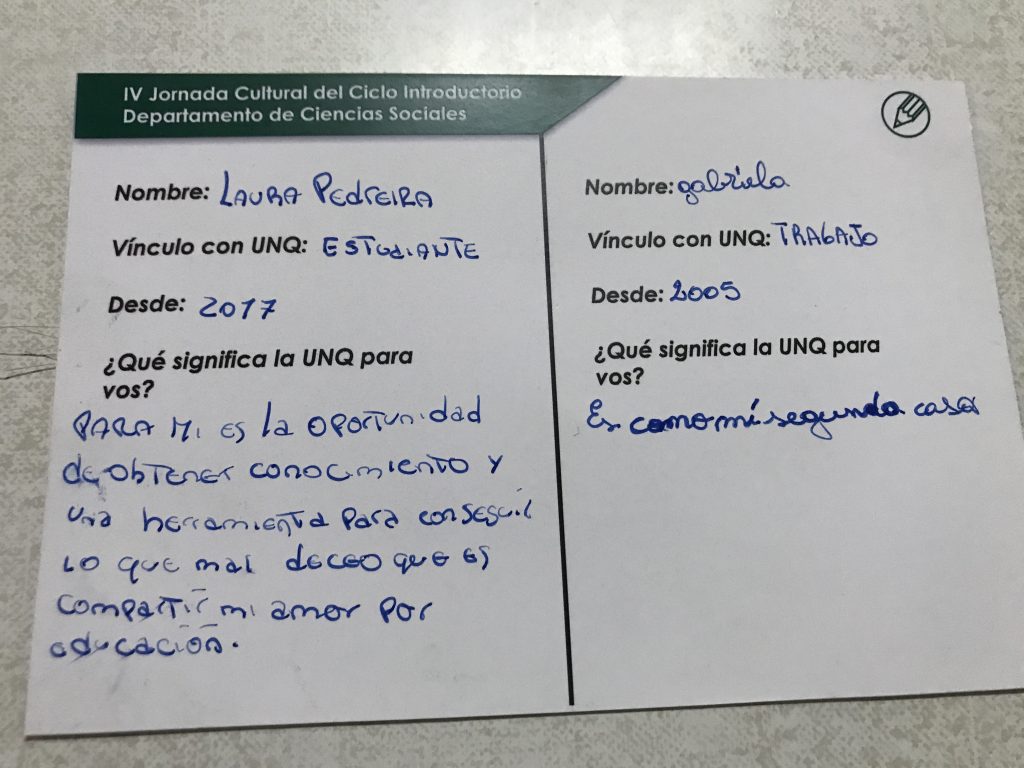 IV Jornada Cultural del Ciclo Introductorio
Departamento de Ciencias Sociales
Nombre: LAURA PEDREIRA
Vínculo con UNQ: ESTUDIANTE
Desde: 2017
¿Qué significa la UNQ para
vos?
PARA MI ES la OPORTUNIDAD
de OBTENER CONOCIMIENTO Y
UNA herramienta para conseguir
LO que mas deceo que es
compartir mi amor por
educación.
Nombre: gabriela
Vínculo con UNQ: TRABAJO
Desde: 2005
¿Qué significa la UNQ para
vos?
Es como mi segunda casa